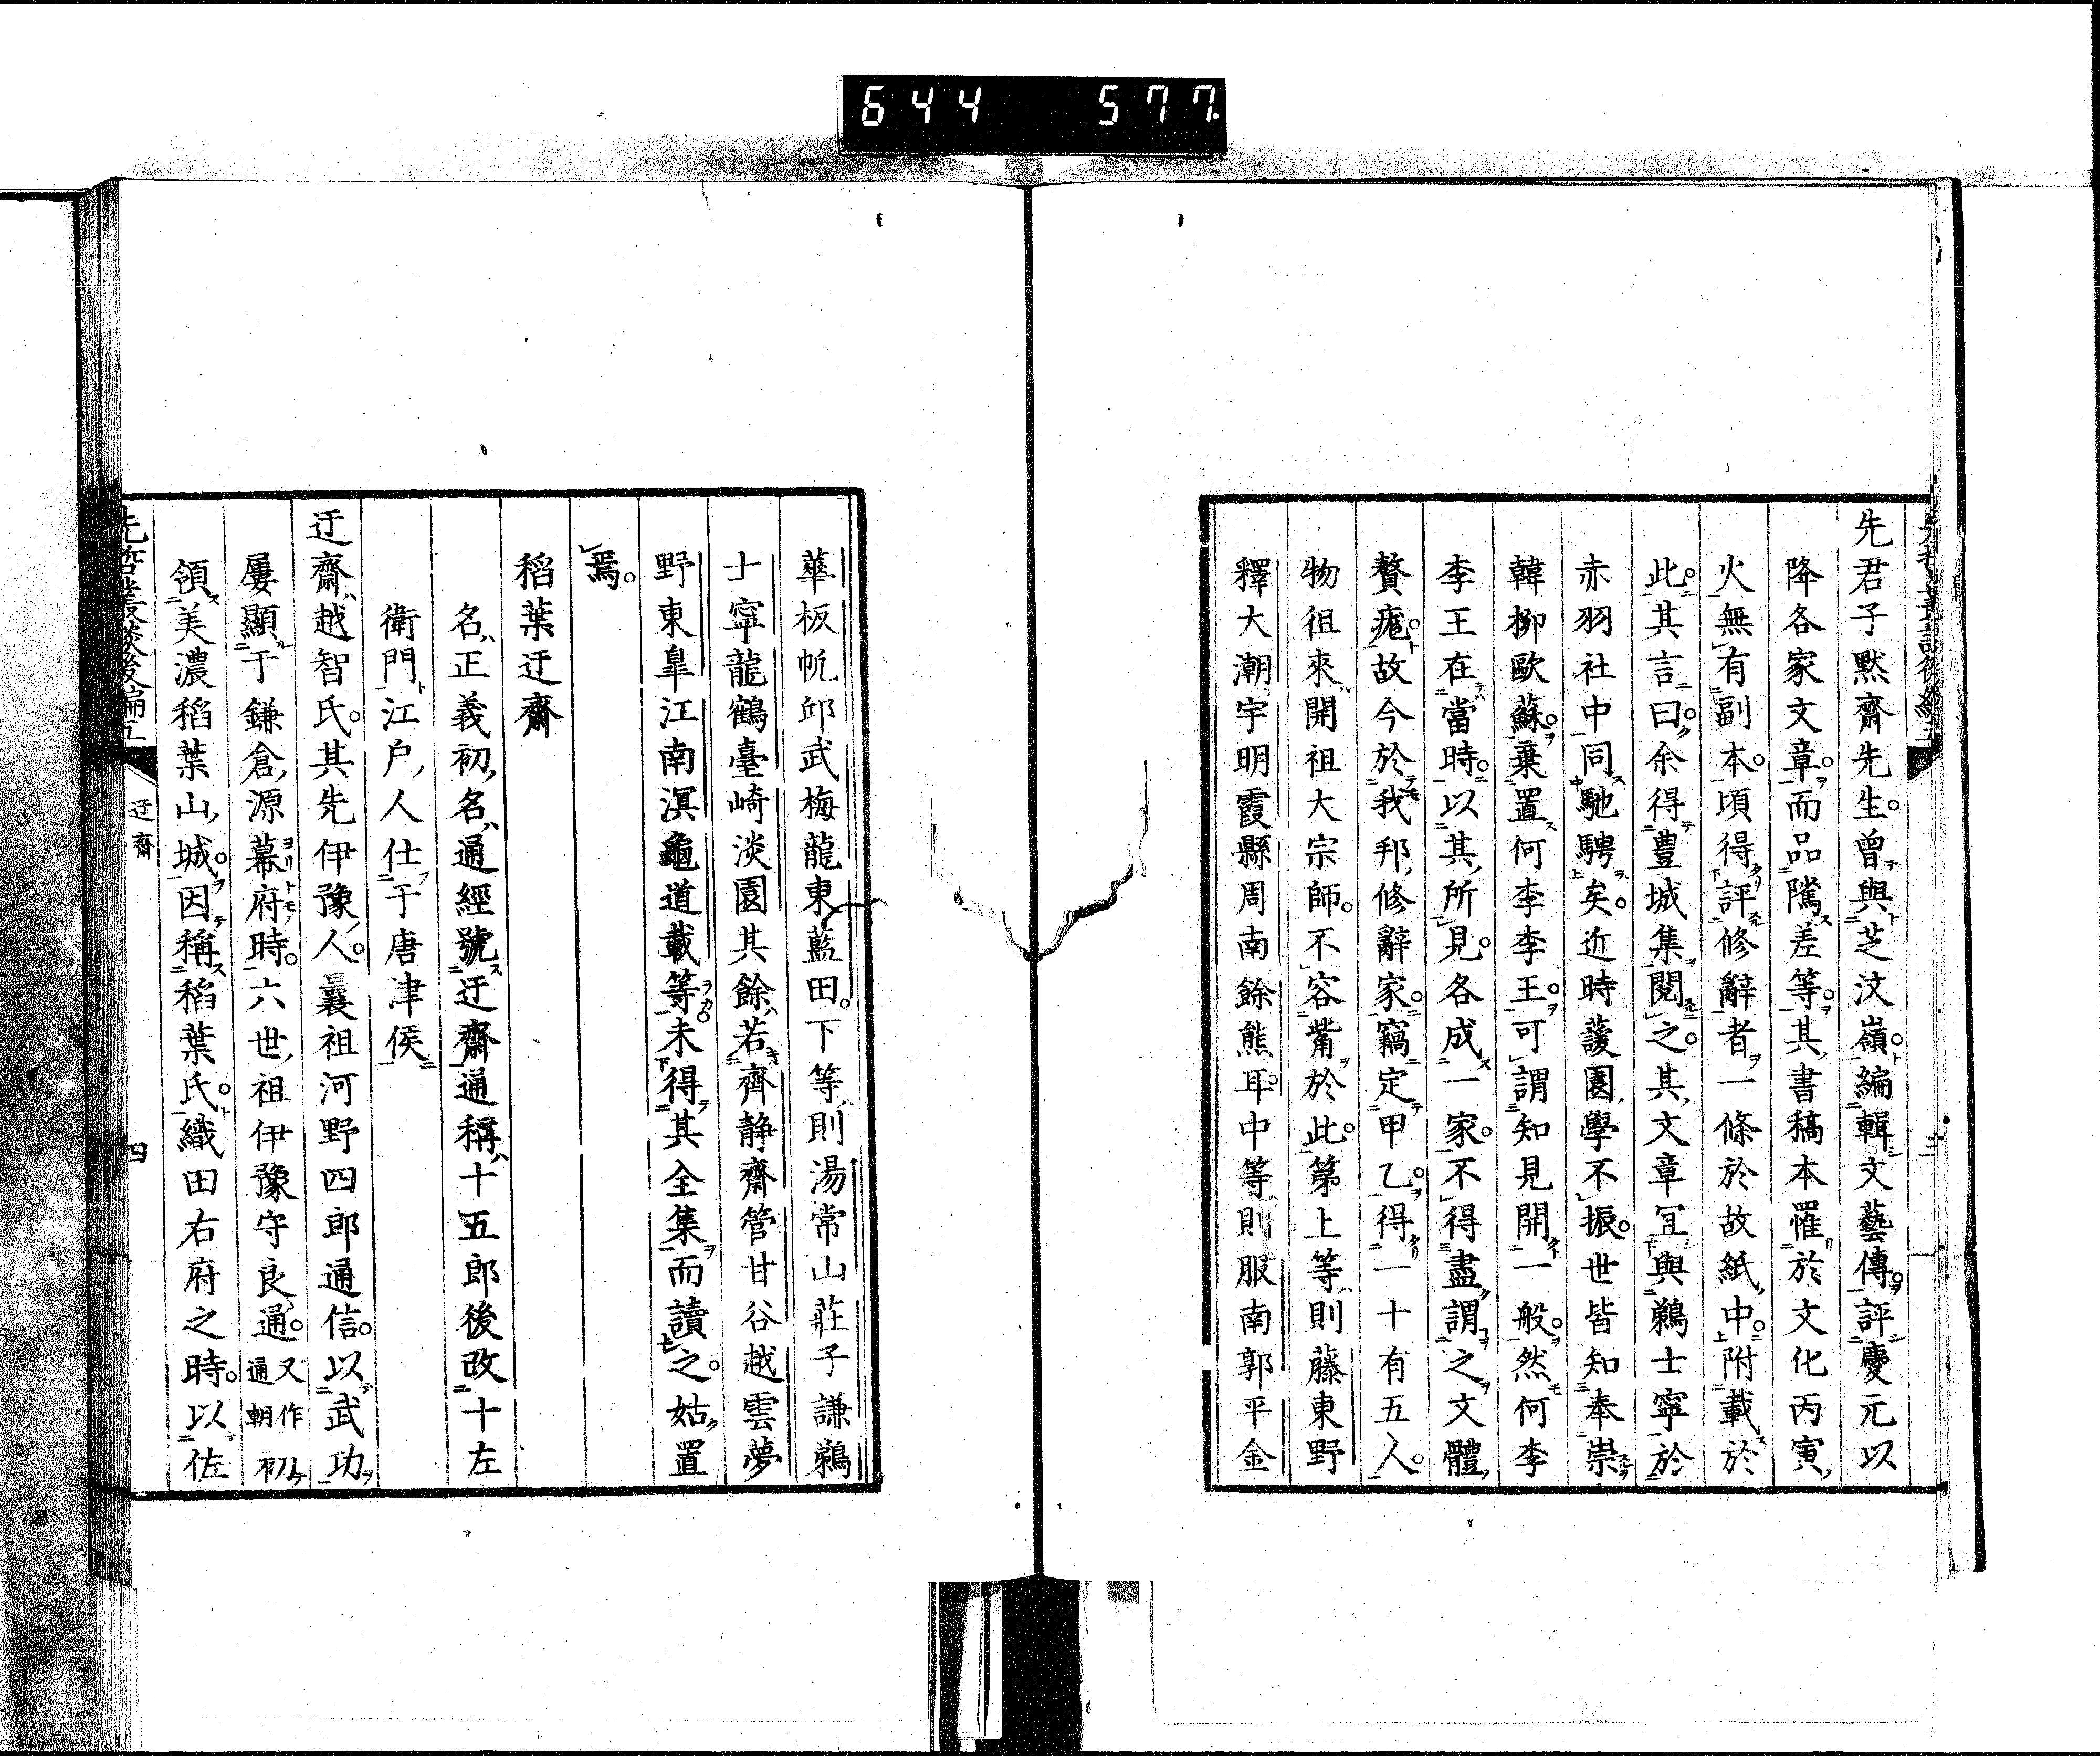 644 577.
先君子默齋先生曾與芝汶嶺編輯文藝傳評慶元以
降各家文章而品隲差等其書稿本罹於文化丙寅
火無有副本頃得評修辭者一條於故紙中附載於
此其言曰余得豊城集閱之其文章冝與鵜士寧於
赤羽社中同馳騁矣近時蘐園學不振世皆知奉崇
韓柳歐蘇棄置何李李王可謂知見開一般然何李
李王在當時以其所見各成一家不得盡謂之文體
贅疣故今於我邦修辭家竊定甲乙得一十有五人
物徂來開祖大宗師不容觜於此第上等則藤東野
釋大潮宇明霞縣周南餘熊耳中等則服南郭平金
華板帆邱武梅龍東藍田下等則湯常山莊子謙鵜
士寧龍鶴臺崎淡園其餘若齊静齋管甘谷越雲夢
野東皐江南溟龜道載等未得其全集而讀之姑置
焉
稻葉迂齋
名正義初名通經號迂齋通稱十五郎後改十左
衛門江户人仕于唐津侯
迂齋越智氏其先伊豫人曩祖河野四郎通信以武功
屢顯于鎌倉源幕府時六世祖伊豫守良通又作通朝初
領美濃稻葉山城因稱稻葉氏織田右府之時以佐
先哲叢談後編五
迂齋
四